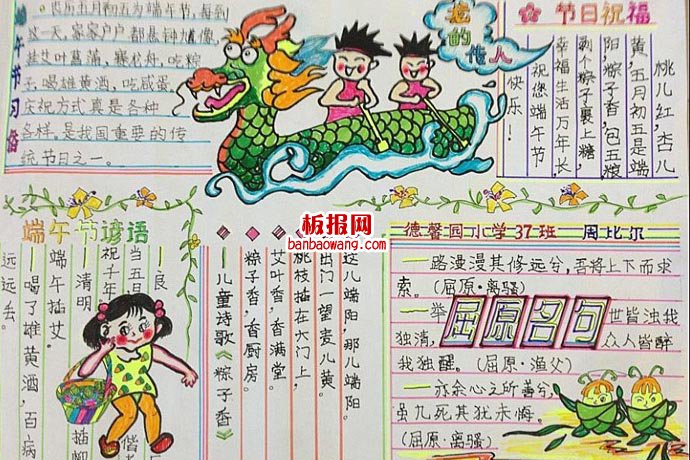 端午节习俗
农历五月初五为端午节,每到
这一天,家家户户都悬钟馗像,
挂艾叶菖蒲,赛龙舟,吃粽
子,喝雄黄酒,吃咸蛋。
庆祝方式真是各种
各样,是我国重要的传
统节日之一。
龙的传人
节日祝福
桃儿红,杏儿
黄,五月初五是端
阳,粽子香,包五粮,
剥个粽子裹上糖,
幸福生活万年长,
祝您端午节
快乐!
端午节谚语
良
当五
祝千年
清明
插柳
端午插艾。
喝了雄黄酒,百病
远远丢。
这儿端阳,那儿端阳。
出门一望麦儿黄。
桃枝插在大门上,
艾叶香,香满堂。
粽子香,香厨房。
儿童诗歌《粽子香》
板报网
banbaowang.com
德馨园小学37班 周比尔
屈原名句
一路漫漫其修远兮,吾将上下而求
索。(屈原·离骚)
一举世皆浊我
独清,众人皆醉
我独醒。(屈原·渔父)
一亦余心之所善兮,
虽九死其犹未悔。
(屈原·离骚)